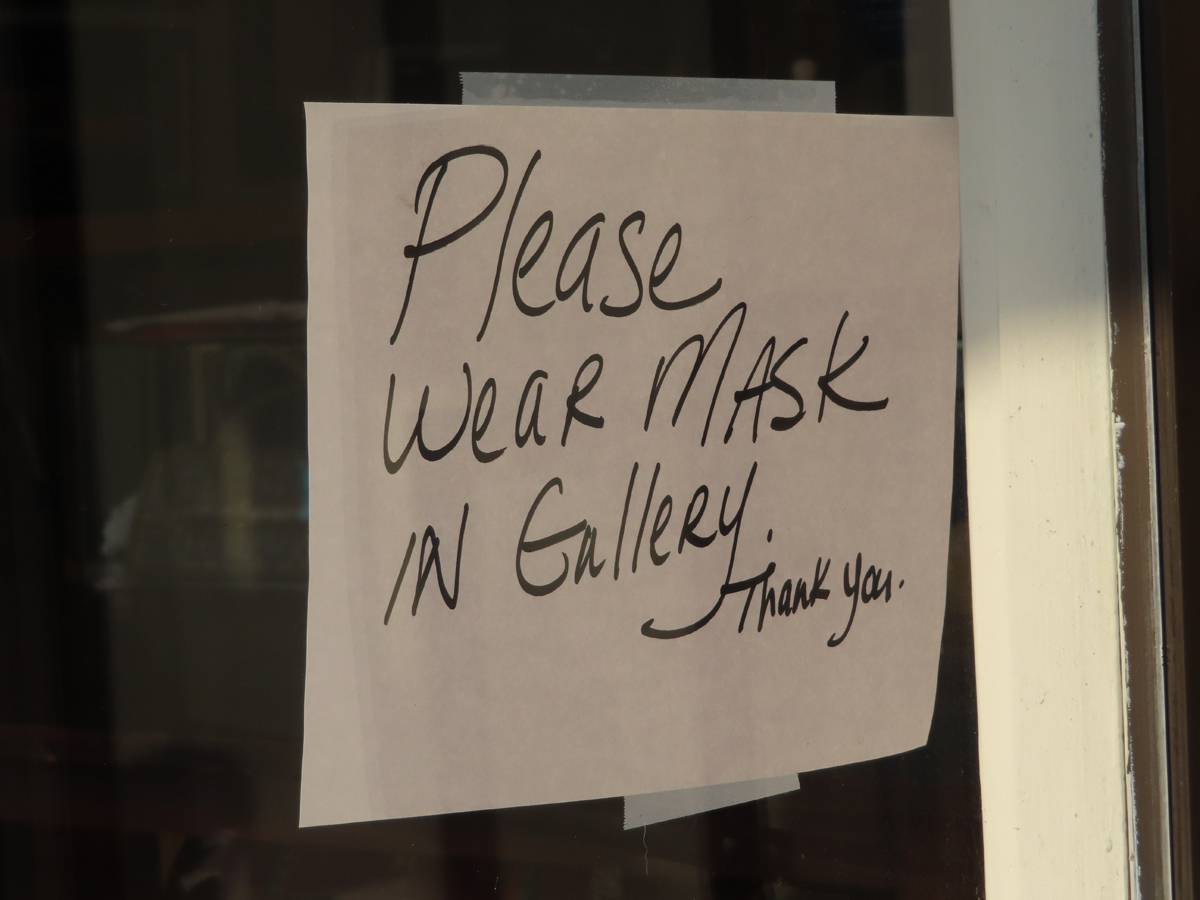 Please
WeaR MASK
IN GalleRy.
Thank you.